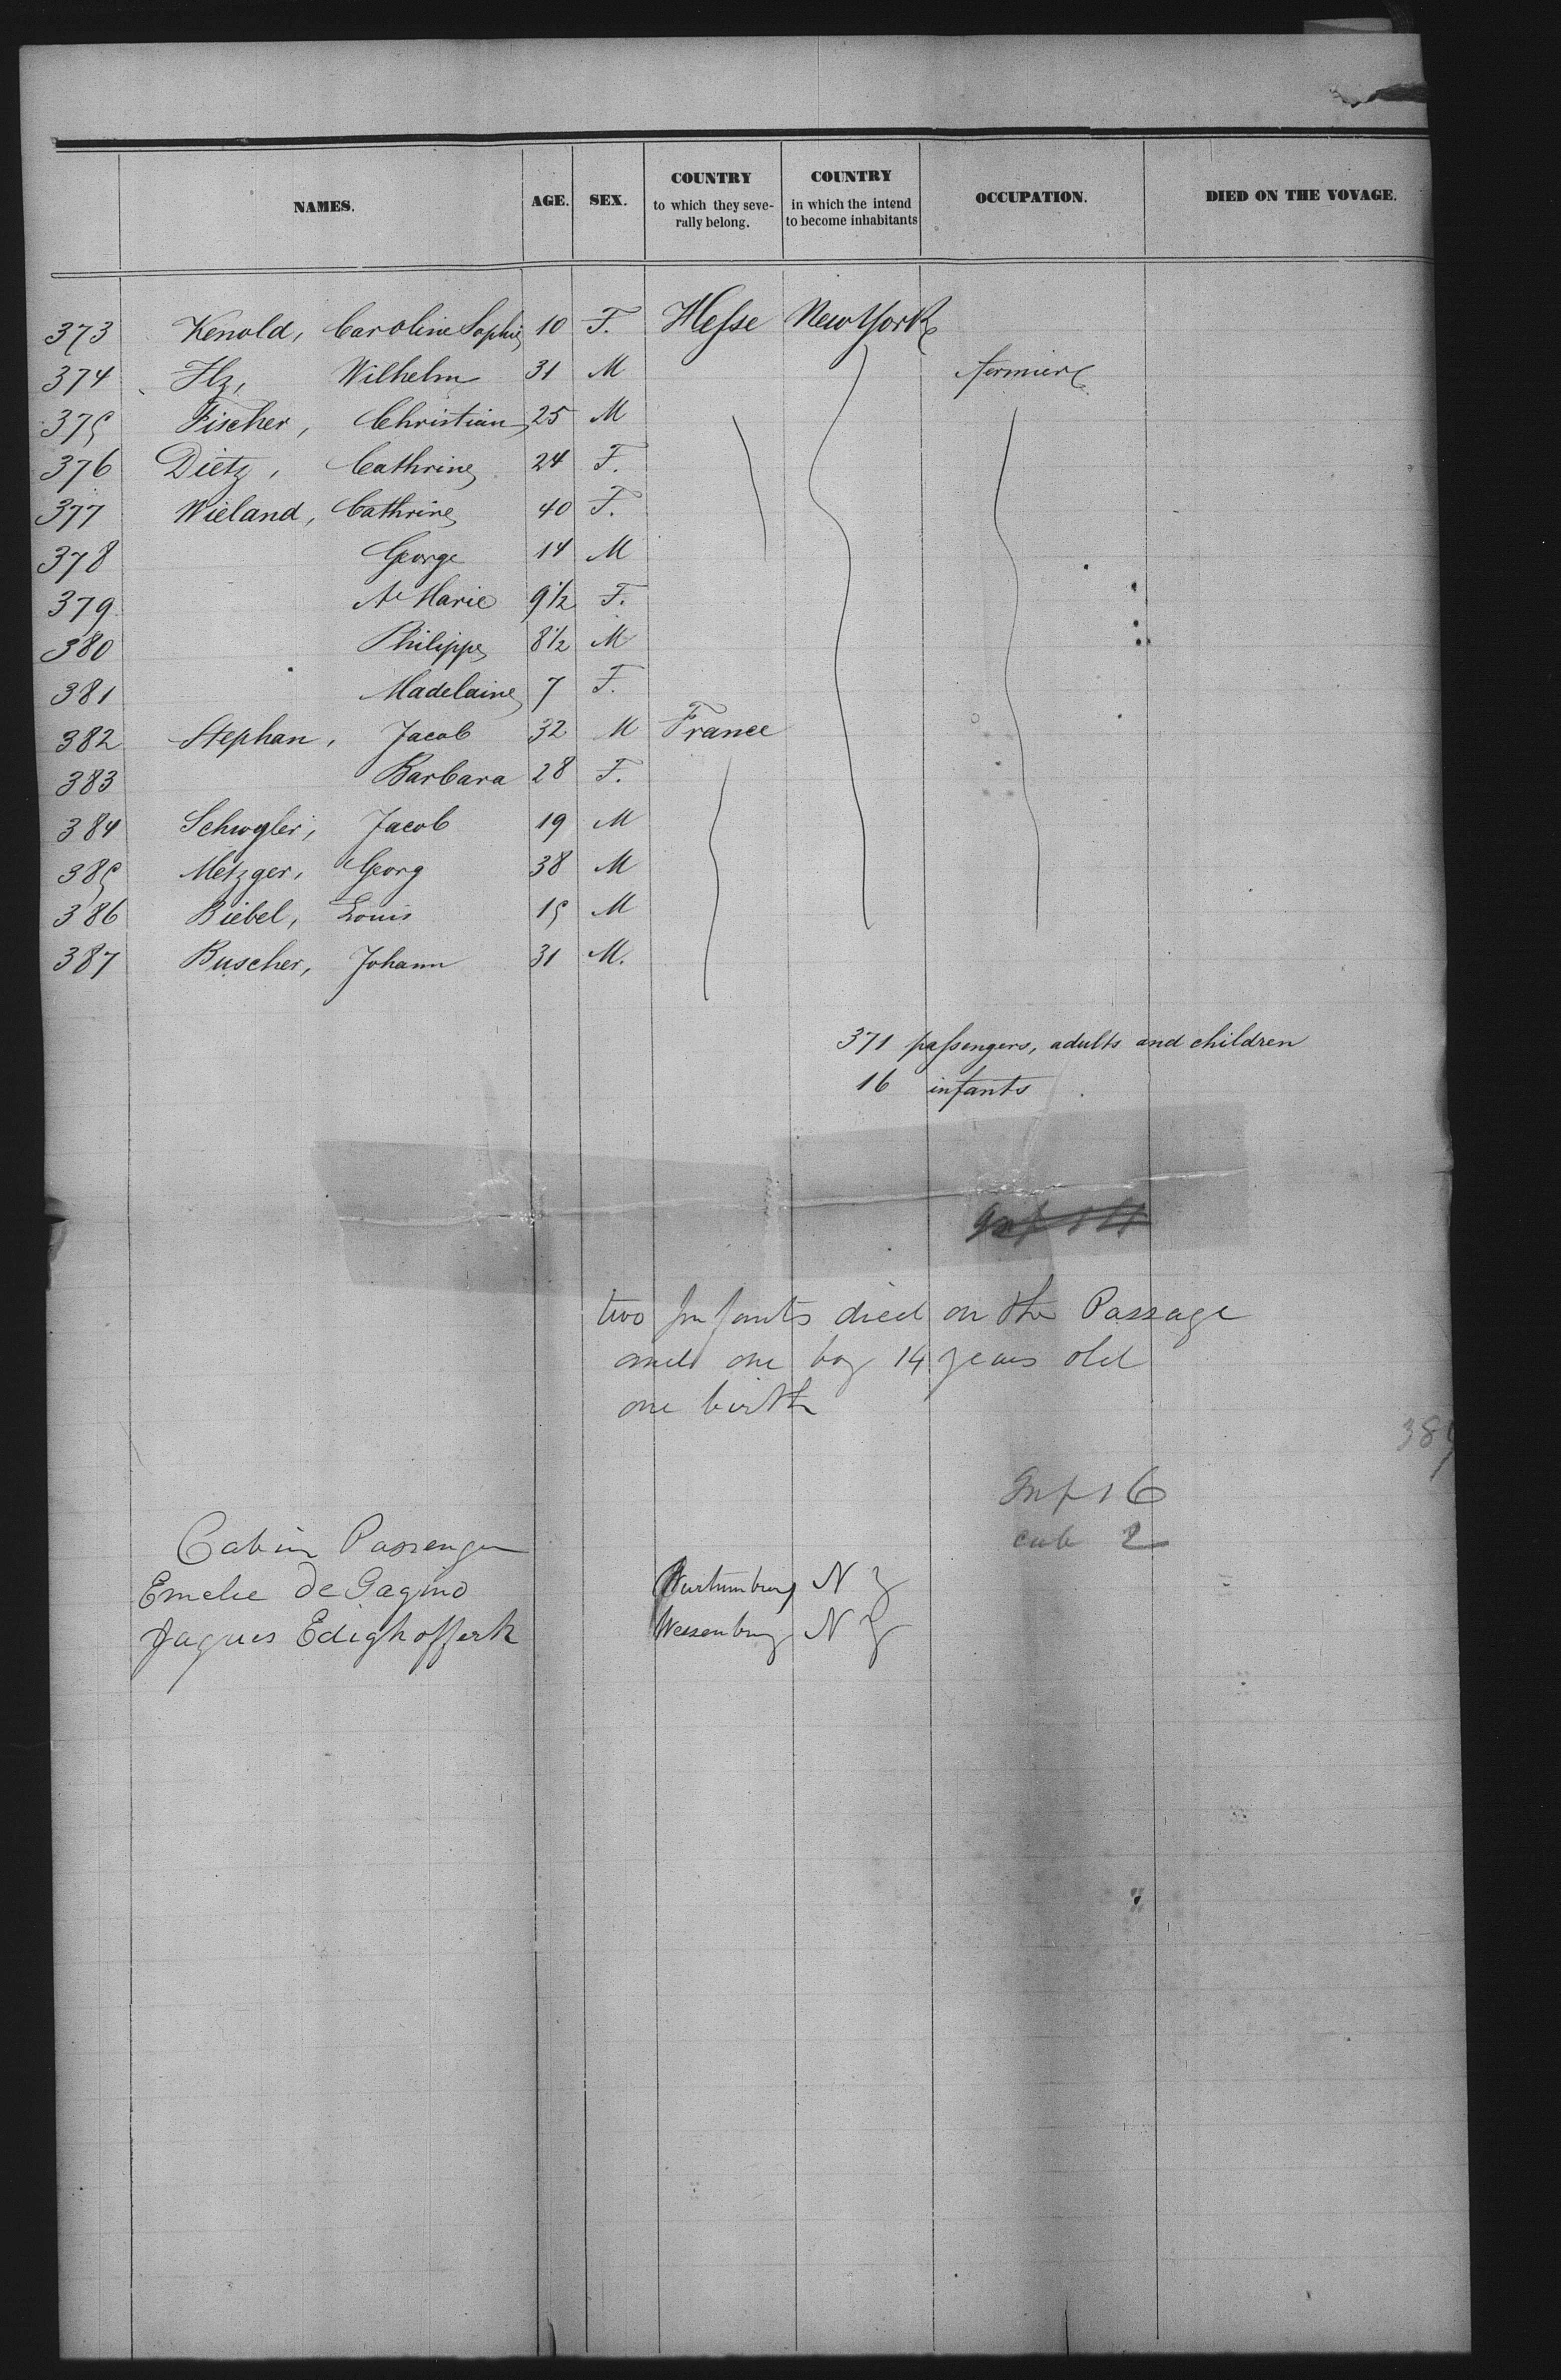 NAMES. AGE. SEX. COUNTRY to which they seve- rally belong. COUNTRY in which the intend to become inhabitants OCCUPATION. DIED ON THE VOYAGE.
373 Kenold, Caroline Sophie 10 F. Hesse New York
374 Ilz, Wilhelm 31 M farmier
375 Fischer, Christian 25 M
376 Dietz, Cathrine 24 F.
377 Wieland, Cathrine 40 F.
378 George 14 M
379 Ae Marie 9 1/2 F.
380 Philippe 8 1/2 M
381 Madelaine 7 F.
382 Stephan, Jacob 32 M France
383 Barbara 28 F.
384 Schwgler, Jacob 19 M
385 Metzger, Georg 38 M
386 Biebel, Louis 15 M
387 Buscher, Johann 31 M.
371 passengers, adults and children
16 infants
two Infants died on the Passage
and one boy 14 years old
one birth
Inf 16
Cabin Passenger cab 2
Emelie De Gagino Wurtumburg N Y
Jaques Edighofferk Wessenburg N Y